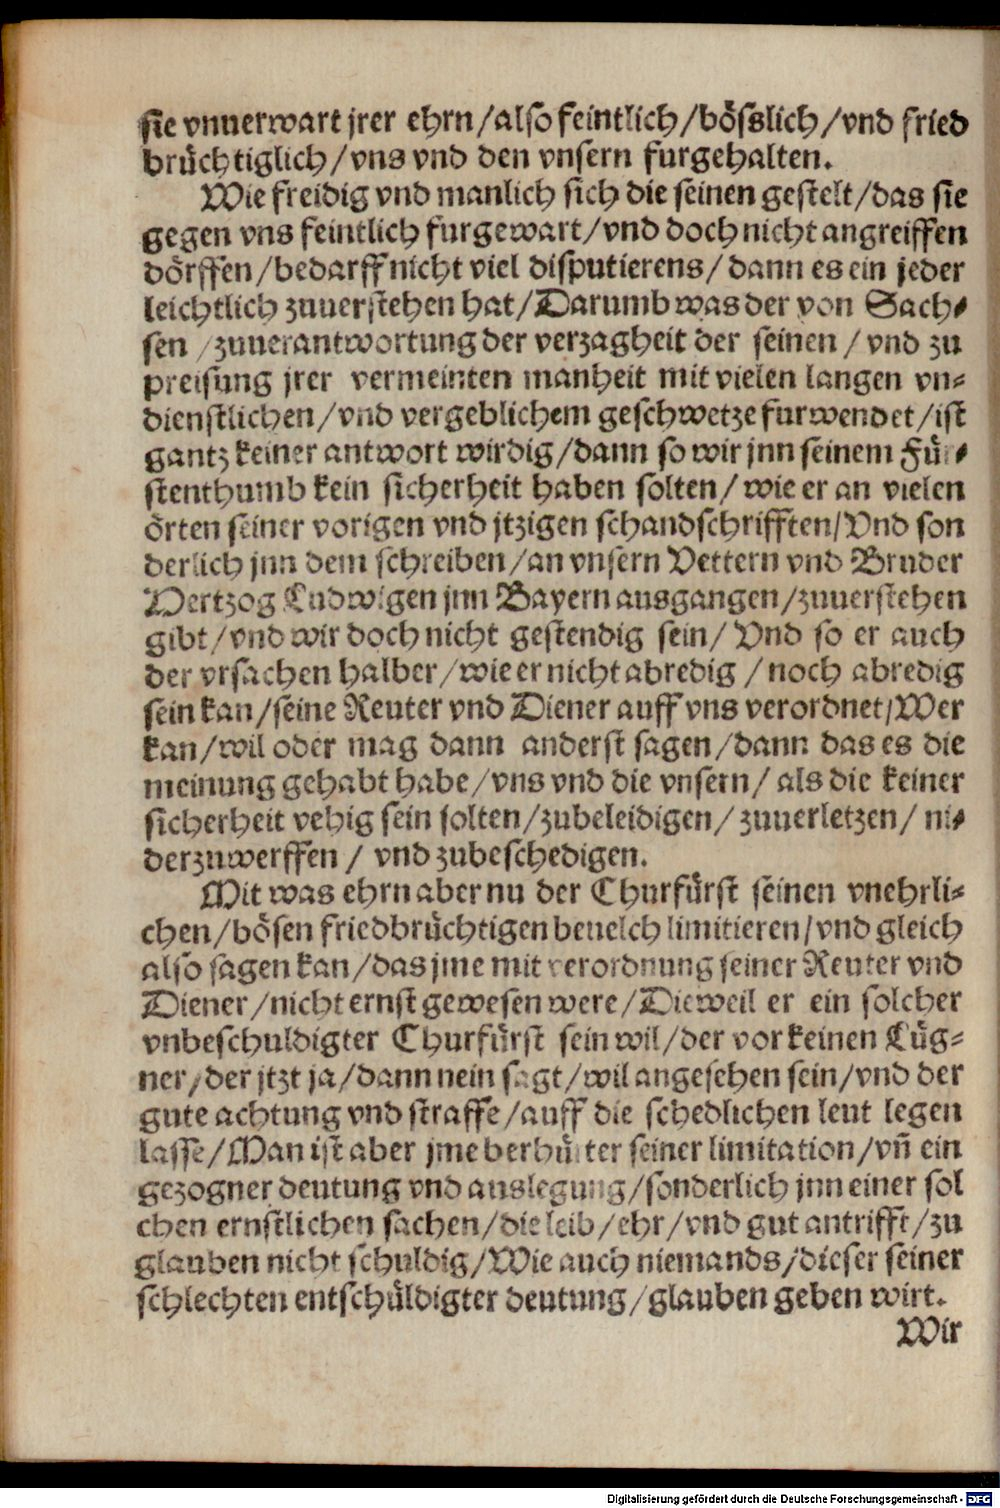 sie vnuerwart jrer ehrn/also feintlich/bösslich/vnd fried
brüchtiglich/vns vnd den vnsern furgehalten.
Wie freidig vnd manlich sich die seinen gestelt/das sie
gegen vns feintlich furgewart/vnd doch nicht angreiffen
dörffen/bedarff nicht viel disputierens/dann es ein jeder
leichtlich zuuerstehen hat/Darumb was der von Sach-
sen/zuuerantwortung der verzagheit der seinen/vnd zu
preisung jrer vermeinten manheit mit vielen langen vn-
dienstlichen/vnd vergeblichem geschwetze furwendet/ist
gantz keiner antwort wirdig/dann so wir jnn seinem Für-
stenthumb kein sicherheit haben solten/wie er an vielen
örten seiner vorigen vnd jtzigen schandschrifften/Vnd son
derlich jnn dem schreiben/an vnsern Vettern vnd Bruder
Hertzog Ludwigen jnn Bayern ausgangen/zuuerstehen
gibt/vnd wir doch nicht gestendig sein/Vnd so er auch
der vrsachen halber/wie er nicht abredig/noch abredig
sein kan/seine Reuter vnd Diener auff vns verordnet/Wer
kan/wil oder mag dann anderst sagen/dann das es die
meinung gehabt habe/vns vnd die vnsern/als die keiner
sicherheit vehig sein solten/zubeleidigen/zuuerletzen/ni-
derzuwerffen/vnd zubeschedigen.
Mit was ehrn aber nu der Churfürst seinen vnehrli-
chen/bösen friedbrüchtigen beuelch limitieren/vnd gleich
also sagen kan/das jme mit verordnung seiner Reuter vnd
Diener/nicht ernst gewesen were/Dieweil er ein solcher
vnbeschuldigter Churfürst sein wil/der vor keinen Lüg-
ner/der jtzt ja/dann nein sagt/wil angesehen sein/vnd der
gute achtung vnd straffe/auff die schedlichen leut legen
lasse/Man ist aber jme berhürter seiner limitation/vñ ein
gezogner deutung vnd auslegung/sonderlich jnn einer sol
chen ernstlichen sachen/die leib/ehr/vnd gut antrifft/zu
glauben nicht schuldig/Wie auch niemands/dieser seiner
schlechten entschüldigter deutung/glauben geben wirt.
Wir
Digitalisierung gefördert durch die Deutsche Forschungsgemeinschaft - DFG